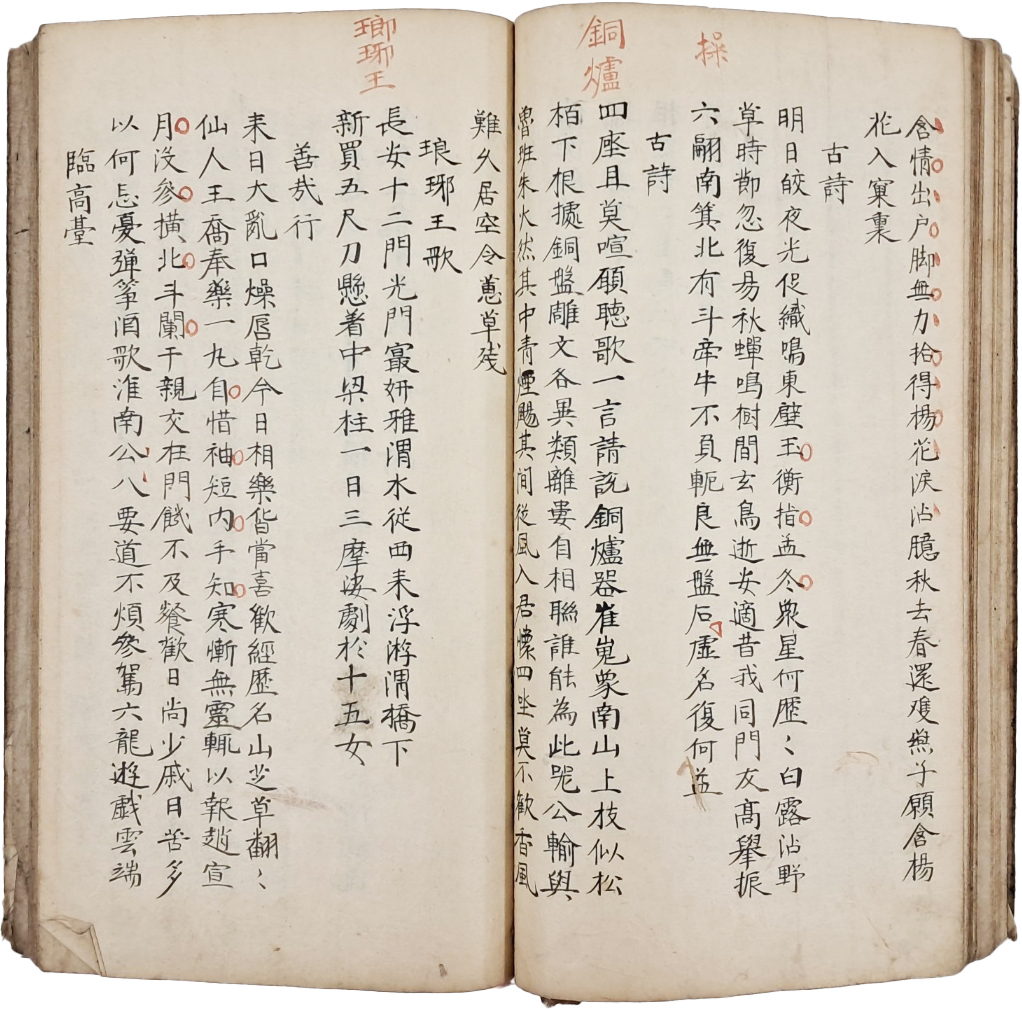 操
銅爐
瑯琊王
含情出户脚無力拾得楊花淚沾臆秋去春還雙燕子願含楊
花入窠裏
古詩
明日皎夜光促織鳴東壁玉衡指孟冬衆星何歷〻白露沾野
草時節忽復易秋蟬鳴樹間玄鳥逝安適昔我同門友高舉振
六翮南箕北有斗牽牛不負軛良無盤石虛名復何益
古詩
四座且莫喧願聽歌一言請說銅爐器崔嵬象南山上枝似松
栢下根據銅盤雕文各異類離婁自相聯誰能為此器公輸與
魯班朱火然其中青煙颺其间從風入君懷四坐莫不歡香風
難久居空令蕙草殘
琅琊王歌
長安十二門光門寂妍雅渭水從西来浮游渭橋下
新買五尺刀懸着中梁柱一日三摩挲劇於十五女
善哉行
来日大亂口燥唇乾今日相樂皆當喜歡經歷名山芝草翻〻
仙人王喬奉藥一丸自惜袖短内手知寒慚無靈輒以報趙宣
月没參橫北斗闌干親交在門飢不及餐歡日尚少戚日苦多
以何忘憂彈筝酒歌淮南公八要道不煩參駕六龍遊戲雲端
臨高臺